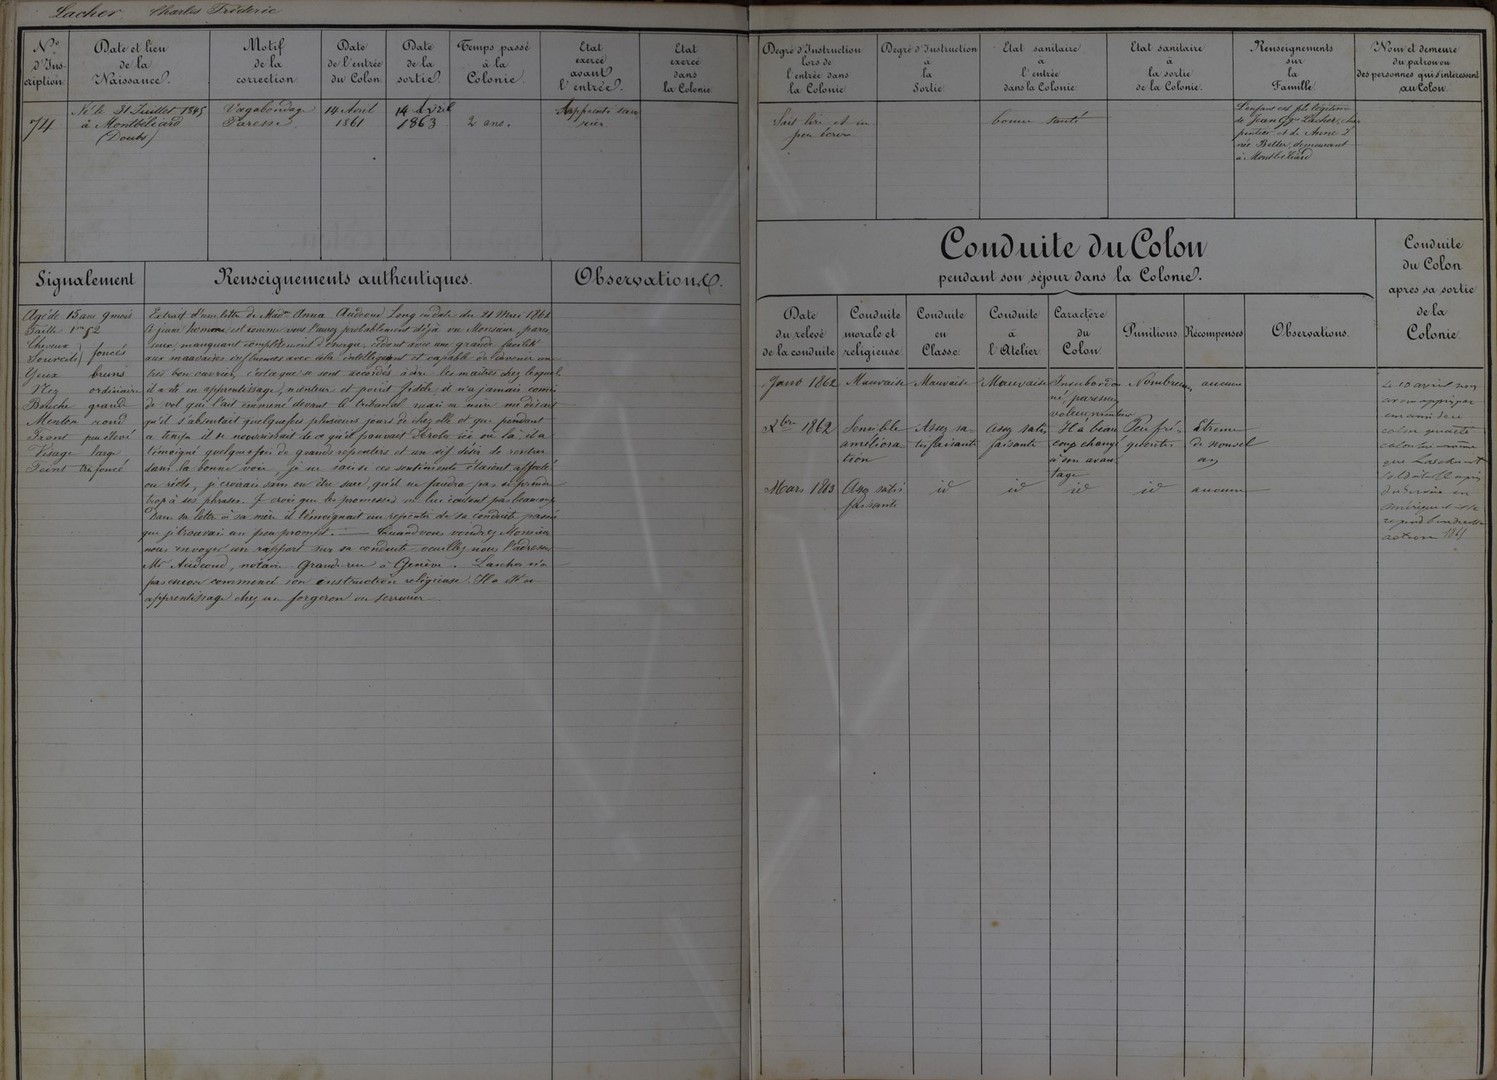 Lacher Charles Fréderic
N.° d'Inscription
Date et lieu de la Naissance.
Motif de la correction
Date de l'entrée du Colon.
Date de la sortie.
Temps passé à la Colonie.
Etat exercé avant l'entrée.
Etat exercé dans la Colonie
74
Né le 31 Juillet 1845
à Montbéliard
(Doubs)
Vagabondage
Paresse
14 Avril
1861
14 Avril
1863
2 ans.
Apprenti serru
rier
Signalement
Renseignements authentiques.
Observations.
Agé de 15 ans 9 mois
Taille 1m 52
Cheveux
Sourcils } foncés
Yeux bruns
Nez ordinaire
Bouche grande
Menton rond
Front peu élevé
Visage large
Teint tr. foncé
Extrait d'une lettre de Mad.e Anna Audeoud Long en date du 21 Mai 1861
Ce jeune homme est comme vous l'aurez probablement déjà vu Monsieur, pares
seux, manquant complètement d'énergie, cédant avec une grande facilité
aux mauvaises influences avec cela intelligent et capable de devenir un
très bon ouvrier, c'est ce que se sont accordés à dire les maîtres chez lesquels
il a été en apprentissage, menteur et point fidèle, il n'a jamais comis
de vol qui l'ait emmené devant le tribunal mais sa mère me disait
qu'il s'absentait quelquefois plusieurs jours de chez elle et que pendant
ce temps il se nourrissait de ce qu'il pouvait dérober ici ou là, il a
témoigné quelquefois de grands repentirs et un vif désir de rentrer
dans la bonne voie, je ne sais si ces sentiments étaient affectés
ou réels, je croirais sans en être sure, qu'il ne faudra pas se prendre
trop à ses phrases. Je crois que les promesses ne lui coutent pas beaucoup
Dans sa lettre à sa mère il témoignait un repentir de sa conduite passée
que je trouvai un peu prompt. — Quand vous voudrez Monsieur
nous envoyer un rapport sur sa conduite veuillez nous l'adresser
Mr Audeoud, notaire Grand-rue à Genève. Lascher n'a
pas encore commencé son instruction religieuse. Il a été en
apprentissage chez un forgeron ou serrurier
Degré d'Instruction lors de l'entrée dans la Colonie
Degré d'Instruction à la Sortie.
Etat sanitaire à l'entrée dans la Colonie.
Etat sanitaire à la sortie de la Colonie.
Renseignements sur la Famille.
Nom et demeure du patron ou des personnes qui s'interessent au Colon.
Sait lire et un
peu écrire
bonne santé
L'enfant est fils légitime
de Jean Gge Lacher, char
pentier et de Anne
née Better, demeurant
à Montbéliard
Conduite du Colon
pendant son séjour dans la Colonie.
Conduite du Colon après sa sortie de la Colonie.
Date du relevé de la conduite
Conduite morale et religieuse.
Conduite en Classe.
Conduite à l'Atelier.
Caractère du Colon.
Punitions.
Récompenses.
Observations.
Janv 1862 Mauvaise Mauvaise Mauvaise Insubordon
né, paresseux
voleur, menteur
Nombreuses aucune
Xbre 1862 Sensible
améliora
tion
Assez sa
tisfaisante
assez satis
faisante
Il a beau
coup changé
à son avan
tage
Peu fré
quentes
étrenne
de nouvel
an
Mars 1863 Assez satis
faisante
id id id id aucune
Le 10 avril nous
avons appris par
un ancien
colon
que Lascher est
soldat
Amérique
1865